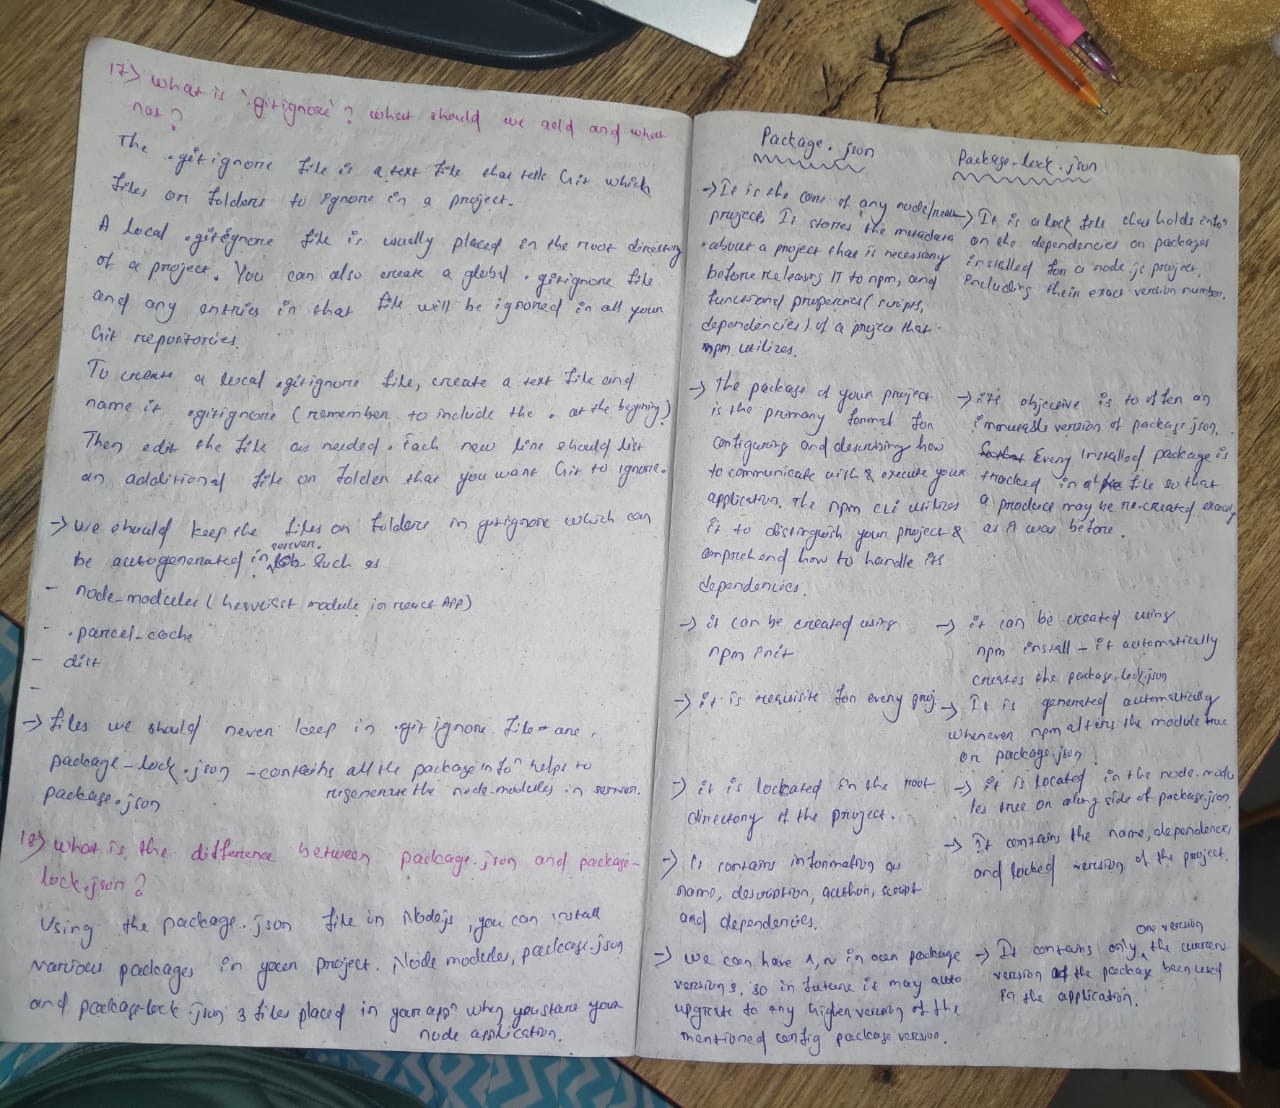 17) What is '.gitignore'? what should we add and what
not?
The .gitignore file is a text file that tells Git which
files or folders to ignore in a project.
A local .gitignore file is usually placed in the root directory
of a project. You can also create a global .gitignore file
and any entries in that file will be ignored in all your
Git repositories.
To create a local .gitignore file, create a text file and
name it .gitignore (remember to include the . at the begining)
Then edit the file as needed. Each new line should list
an additional file or folder that you want Git to ignore.
→ we should keep the files or folders in gitignore which can
be autogenerated in server. such as
- node-modules (heaviest module in react App)
- .parcel-cache
- dist
-
→ files we should never keep in .gitignore file are,
package-lock.json - contains all the package info helps to
package.json regenerate the node-modules in server.
18) what is the difference between package.json and package-
lock.json?
Using the package.json file in Nodejs, you can install
various packages in your project. Node modules, package.json
and package-lock.json 3 files placed in your appn when you start your
node application.
Package.json
→ It is the core of any node/
project. It stores the metadata
about a project that is necessary
before releasing IT to npm, and
functional properties (scripts,
dependencies) of a project that
npm utilizes.
→ The package of your project
is the primary format for
configuring and describing how
to communicate with & execute your
application. The npm cli utilizes
it to distinguish your project &
comprehend how to handle its
dependencies.
→ it can be created using
npm init
→ it is requisite for every proj.
→ it is lockated in the root
directory of the project.
→ It contains information as
name, description, author, script
and dependencies.
→ we can have ^, ~ in our package
versions, so in future it may auto
upgrate to any higher version of the
mentioned config package version.
Package-lock.json
→ It is a lock file that holds info
on the dependencies or packages
installed for a node.js project,
including their exact version number.
→ it's objective is to offer an
immutable version of package json.
Every installed package is
tracked in a file so that
a produce may be re-created exactly
as it was before.
→ it can be created using
npm install - it automatically
creates the package-lock.json
→ It is generated automatically
whenever npm alters the module tree
or package.json.
→ it is located in the node-modu
les tree or along side of package.json
→ It contains the name, dependencies
and locked version of the project.
→ It contains only one version, the current
version of the package been used
in the application.